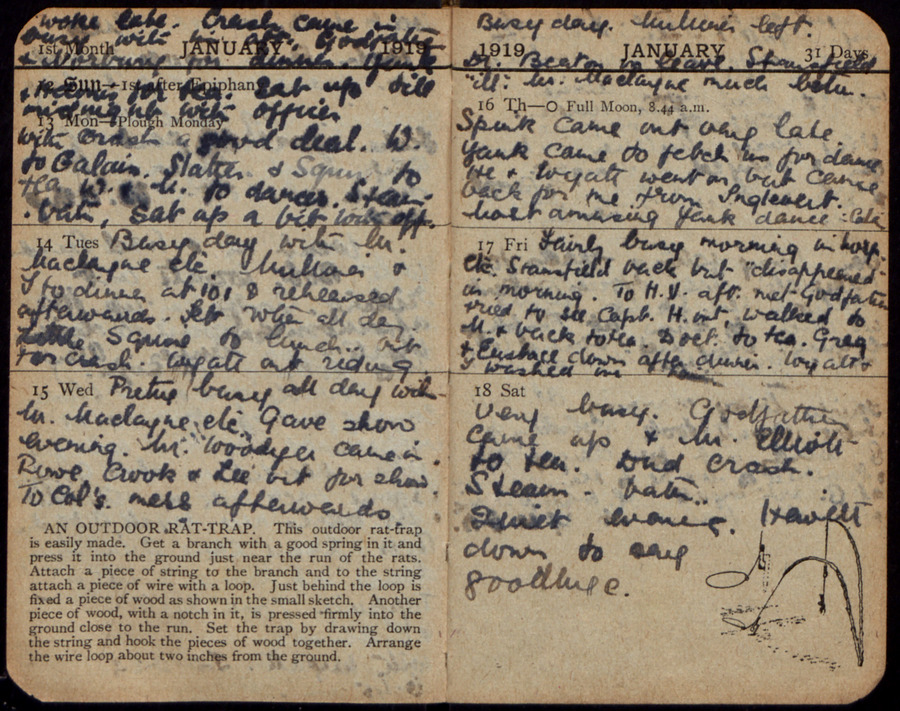 woke late. Crash came in
busy with
1st Month JANUARY 1919
for dinner. Yank
12 Sun—1st after Epiphany
sat up till
midnight with officer
13 Mon—Plough Monday
with Crash a good deal. W.
to Calais. Slatter & Squire to
tea. W. & M. to dance. Steam-
bath, sat up a bit with off.
14 Tues Busy day with Mr.
Maclayne etc. &
I to dinner at 101 & rehearsed
afterwards. all day.
Little Squire to lunch.. but
for crash. Wyatt out riding.
15 Wed Pretty busy all day with
Mr. Maclayne etc. Gave show
evening. Mr. Woodyer came in.
Rowe Crook & Lee but for show.
To Col's. mess afterwards
AN OUTDOOR RAT-TRAP. This outdoor rat-trap
is easily made. Get a branch with a good spring in it and
press it into the ground just near the run of the rats.
Attach a piece of string to the branch and to the string
attach a piece of wire with a loop. Just behind the loop is
fixed a piece of wood as shown in the small sketch. Another
piece of wood, with a notch in it, is pressed firmly into the
ground close to the run. Set the trap by drawing down
the string and hook the pieces of wood together. Arrange
the wire loop about two inches from the ground.
Busy day. left.
1919 JANUARY 31 Days
Dr. Beaton on leave. Stansfield
ill. Mr. Maclayne much better.
16 Th—O Full Moon, 8.44 a.m.
Spink came out very late.
Yank came to fetch us for dance
He & Wyatt went on but came
back for me from Inglevert.
Most amusing Yank dance
17 Fri Fairly busy morning in hosp.
etc. Stansfield back but "disappeared"
in morning. To H.V. aft. met Godfather
tried to see Capt. H. out, walked to
M. & back to tea. Doct. to tea. Greg
& Eustace down after dinner. Wyatt &
I washed
18 Sat
Very busy. Godfather
came up & Mr. Elliott
to tea. Dud crash.
Steam-bath.
Quiet evening. Hewitt
down to say
goodbye.